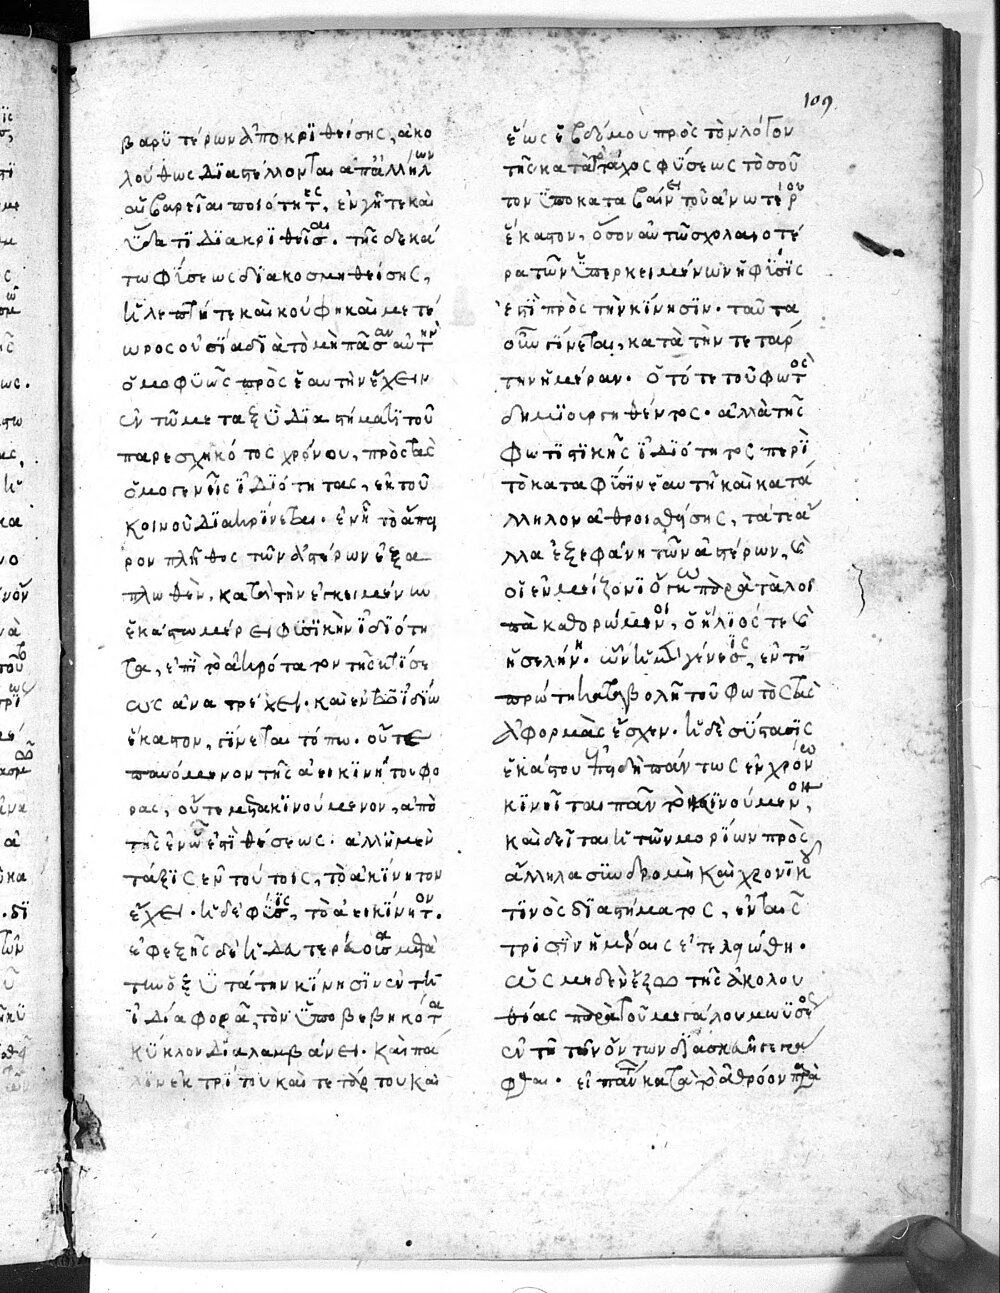 109
βαρυτέρων ἀποκριθείσης, ἀκο
λούθως διαστέλλονται ἀπἀλλήλων
αὖ βαρεῖαι ποιότητες, ἐν γῆ τε καὶ
ὕδατι διακριθεῖσαι. τῆς δε κά
τω φύσεως διακοσμηθείσης,
ἡ λεπτή τε καὶ κούφη καὶ μετέ
ωρος οὐσία διὰ τὸ μὴ πᾶσαν αὐτὴν
ὁμοφυῶς πρὸς ἑαυτὴν ἔχειν
ἐν τῶ μεταξὺ διαστήματι τοῦ
παρεσχηκότος χρόνου, πρὸς τὰς
ὁμογενεῖς ἰδιότητας, ἐκ τοῦ
κοινοῦ διακρίνεται. ἐν ἧ τὸ ἄπει
ρον πλῆθος τῶν ἀστέρων ἐξα
πλωθὲν, κατὰ τὴν ἐγκειμένην
ἑκάστω μέρει φυσικὴν ἰδιότη
τα, ἐπὶ τὸ ἀκρότατον τῆς κτίσε
ως ἀνατρέχει. καὶ ἐν τῶ ἰδίω
ἕκαστον, γίνεται τόπω. οὔτε
παυόμενον τῆς ἀεικινήτου φο
ρας, οὔτε μετακινούμενον, ἀπὸ
τῆς ἐν ὧ ἐστὶ θέσεως. ἀλλ' ἡ μὲν
τάξις ἐν τούτοις, τὸ ἀκίνητον
ἔχει. ἡ δὲ φύσις, τὸ ἀεικίνητον.
ἐφεξῆς δὲ ἡ δευτερεύουσα μετὰ
τὴν ὀξυτάτην κίνησιν ἐν τῆ
διαφορᾶ, τὸν ὑποβεβηκότα
κύκλον διαλαμβάνει. καὶ πά
λιν ἐκ τρίτου καὶ τετάρτου καὶ
ἕως ἑβδόμου πρὸς τὸν λόγον
τῆς κατὰ τάχος φύσεως τοσοῦ
τον ὑποκαταβαίνει τοῦ ἀνωτέρου
ἕκαστον, ὅσον αὐτῶ σχολαιοτέ
ρα τῶν ὑπερκειμένων ἡ φύσις
ἐστὶ πρὸς τὴν κίνησιν. ταῦτα
οὖν γίνεται, κατὰ τὴν τετάρ
την ἡμέραν. οὐ τότε τοῦ φωτὸς
δημιουργηθέντος. ἀλλὰ τῆς
φωτιστικῆς ἰδιότητος περὶ
τὸ κατα φύσιν ἑαυτῆ καὶ κατάλ
λληλον ἀθροισθείσης, τά τε ἄ
λλα ἐξεφάνη τῶν ἀστέρων, καὶ
οἱ ἐν μείζονι ὄγκω παρὰ τὰ λοι
πὰ καθορώμενοι, ὁ ἥλιός τε καὶ
ἡ σελήνη. ὧν ἡ γένεσις, ἐν τῆ
πρώτη καταβολῆ τοῦ φωτὸς τὰς
ἀφορμὰς ἔσχεν. ἡ δὲ σύστασις
ἑκάστου ἐπειδὴ πάντως ἐν χρόνω
κινεῖται πᾶν τὸ κινούμενον,
καὶ δεῖται ἡ τῶν μορίων πρὸς
ἄλληλα συνδρομὴ καὶ χρονικοῦ
τινὸς διαστήματος, ἐν ταῖς
τρισὶν ἡμέραις ἐτελειώθη.
ὡς μηδὲν ἔξω τῆς ἀκολου
θίας παρὰ τοῦ μεγάλου μωυσέος
ἐν τῆ τῶν ὄντων διασκευῆ
φθαι. εἰ πάντα κατὰ τὸ ἀθρόον παρὰ